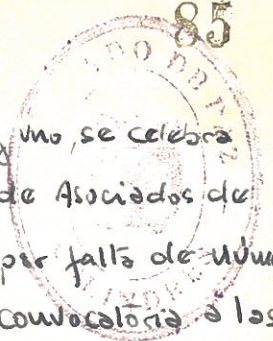 85
y uno, se celebra
de Asociados de
por falta de núme
convocatoria a las